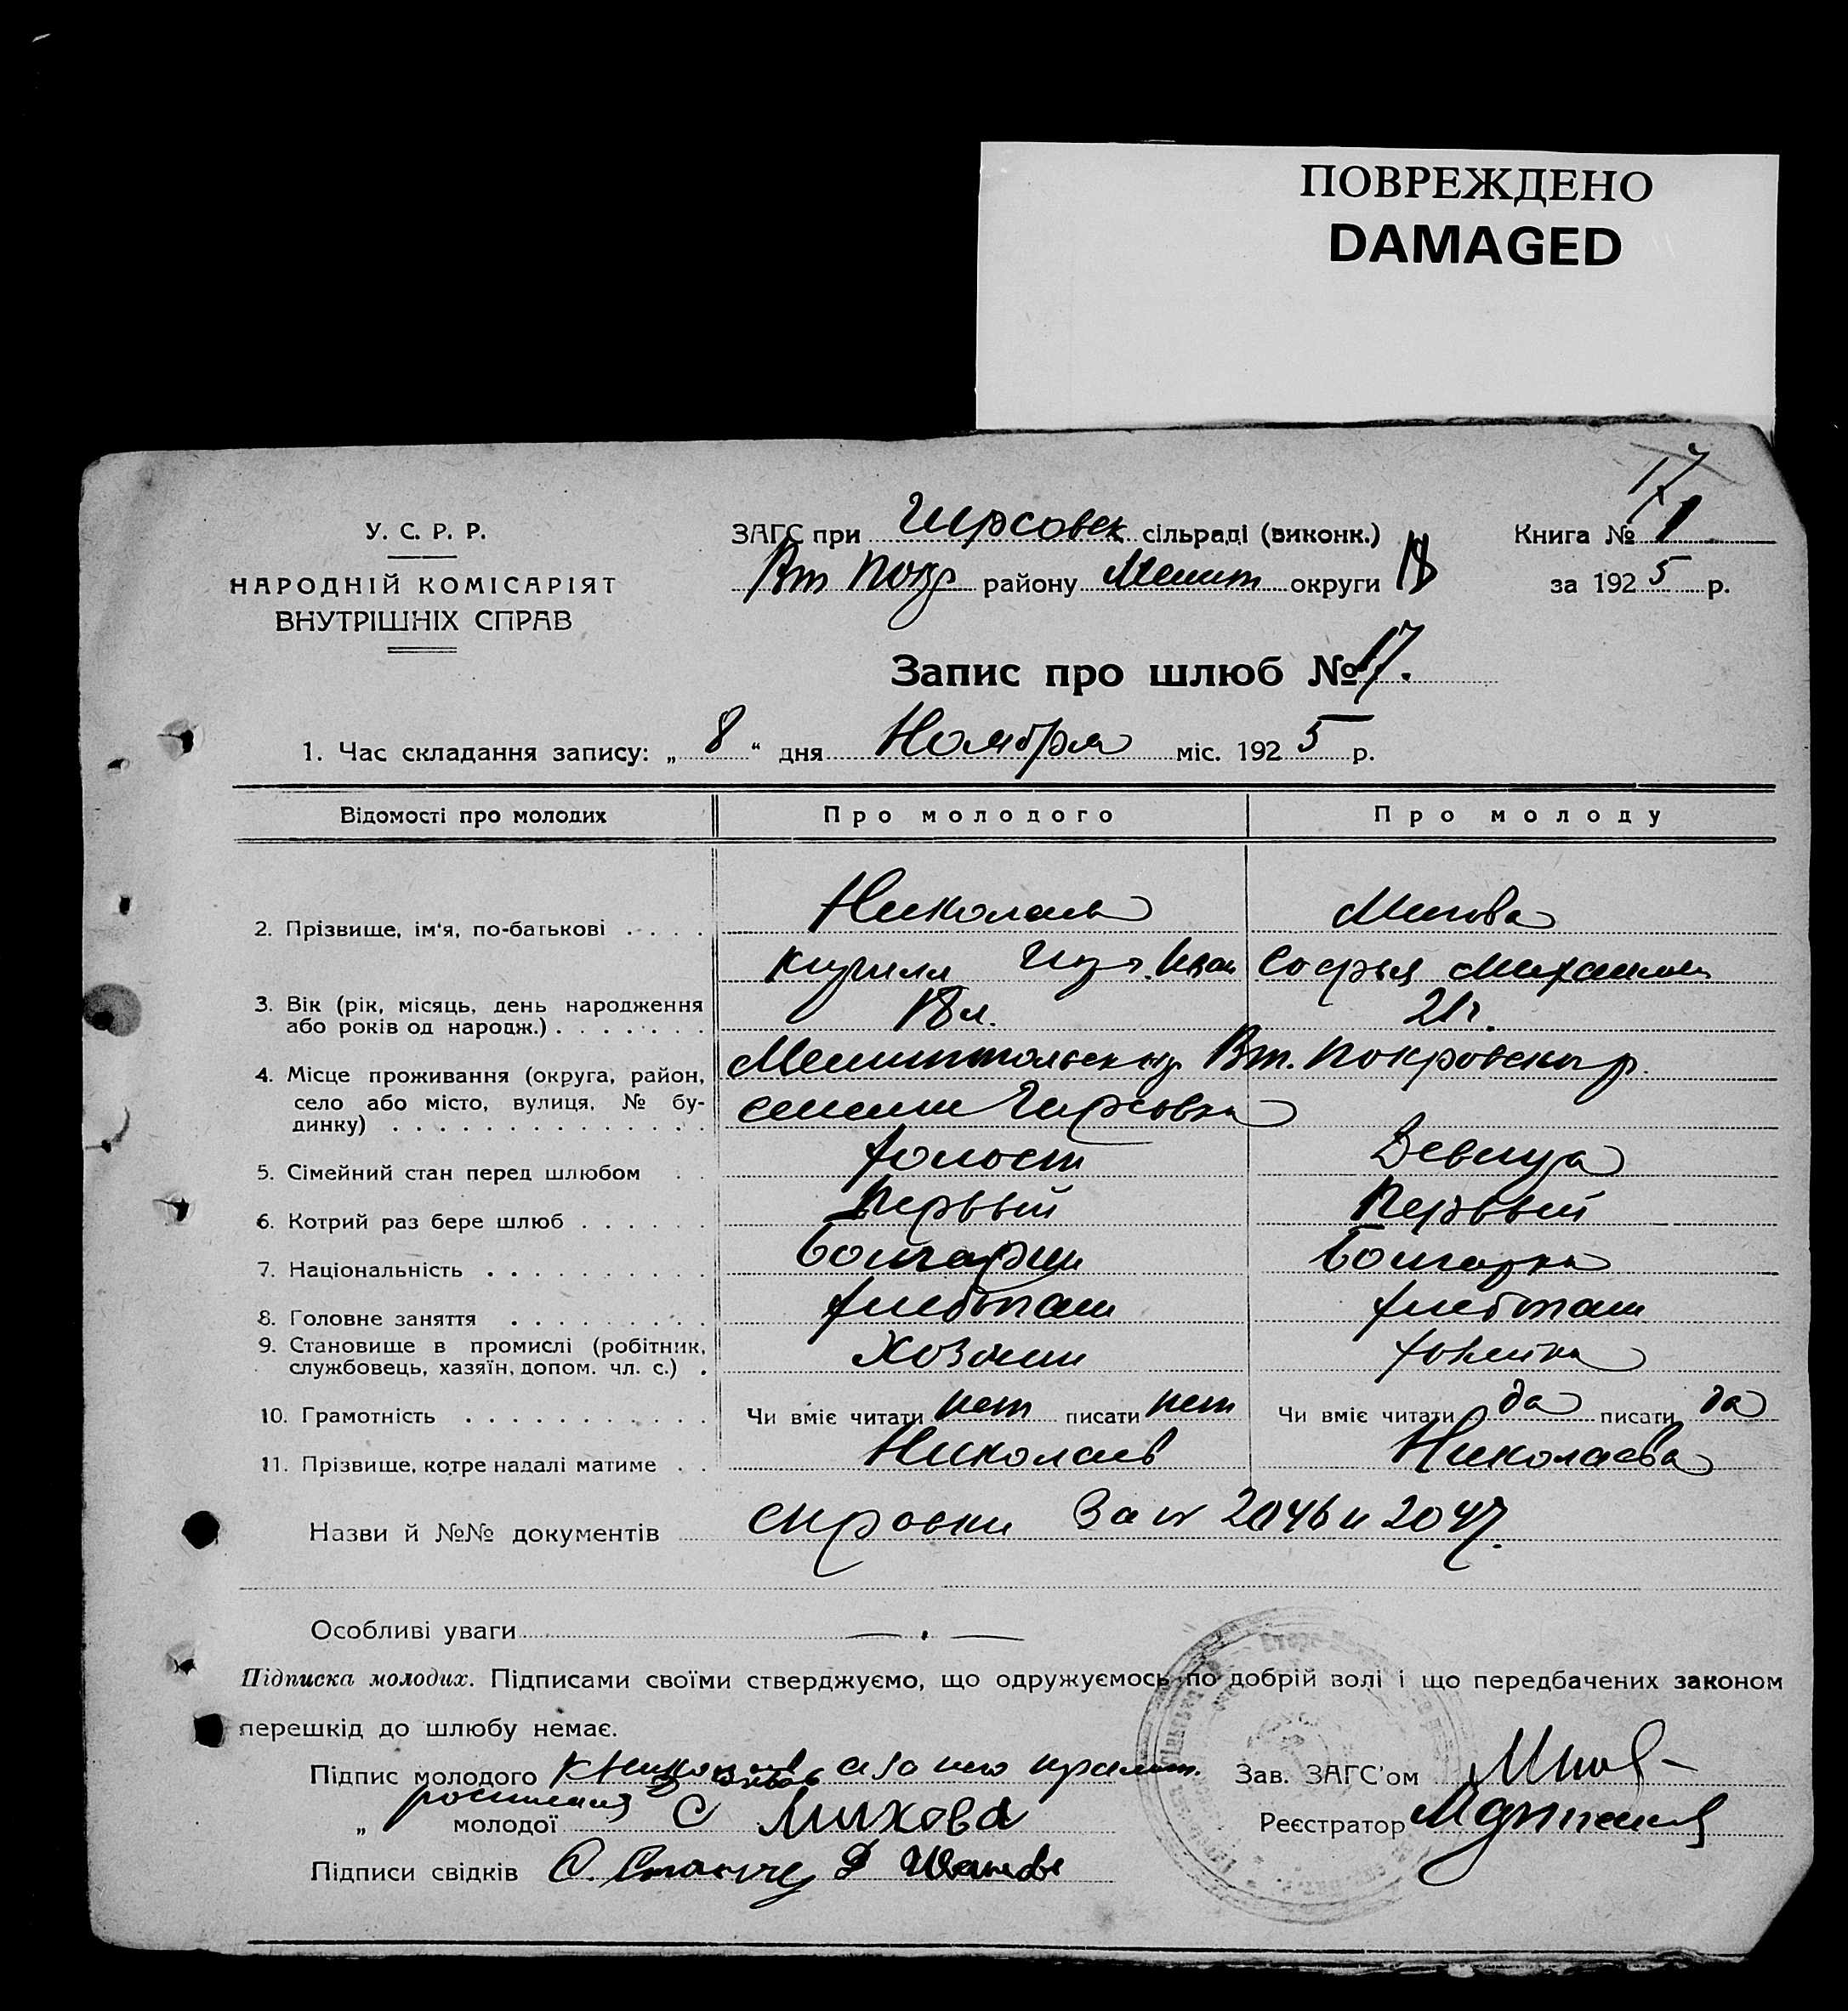 ПОВРЕЖДЕНО
DAMAGED
17
У. С. Р. Р.
НАРОДНІЙ КОМІСАРІЯТ
ВНУТРІШНІХ СПРАВ
ЗАГС при Гирсовск сільраді (виконк.)
Вт Покр району Мелит округи
Книга № 1
за 1925 р.
Запис про шлюб № 17.
1. Час складання запису: „ 8 “ дня Ноября міс. 1925 р.
Відомості про молодих Про молодого Про молоду
2. Прізвище, ім'я, по-батькові . . . . Николаев
Кирилл Иван Софья Михайлов
3. Вік (рік, місяць, день народження
або років од народж.) . . . . . . . 18 л. 21 г.
4. Місце проживання (округа, район,
село або місто, вулиця, № бу-
динку) . . . . . . . . . . . . . .
Мелитопольск Вт. Покровск р.
селении Гирсовка
5. Сімейний стан перед шлюбом . . Холост Девица
6. Котрий раз бере шлюб . . . . . . Первый Первый
7. Національність . . . . . . . . . . Болгарин Болгарка
8. Головне заняття . . . . . . . . . Хлебопаш Хлебопаш
9. Становище в промислі (робітник,
службовець, хазяїн, допом. чл. с.) . Хозяин
10. Грамотність . . . . . . . . . . . Чи вміє читати нет писати нет Чи вміє читати да писати да
11. Прізвище, котре надалі матиме . . Николаев Николаева
Назви й №№ документів справки за № 2046 и 2047.
Особливі уваги — . —
Підписка молодих. Підписами своїми стверджуємо, що одружуємось по добрій волі і що передбачених законом
перешкід до шлюбу немає.
Підпис молодого К Николаев а за него
Зав. ЗАГС'ом
„ молодої С Михова
Реєстратор
Підписи свідків